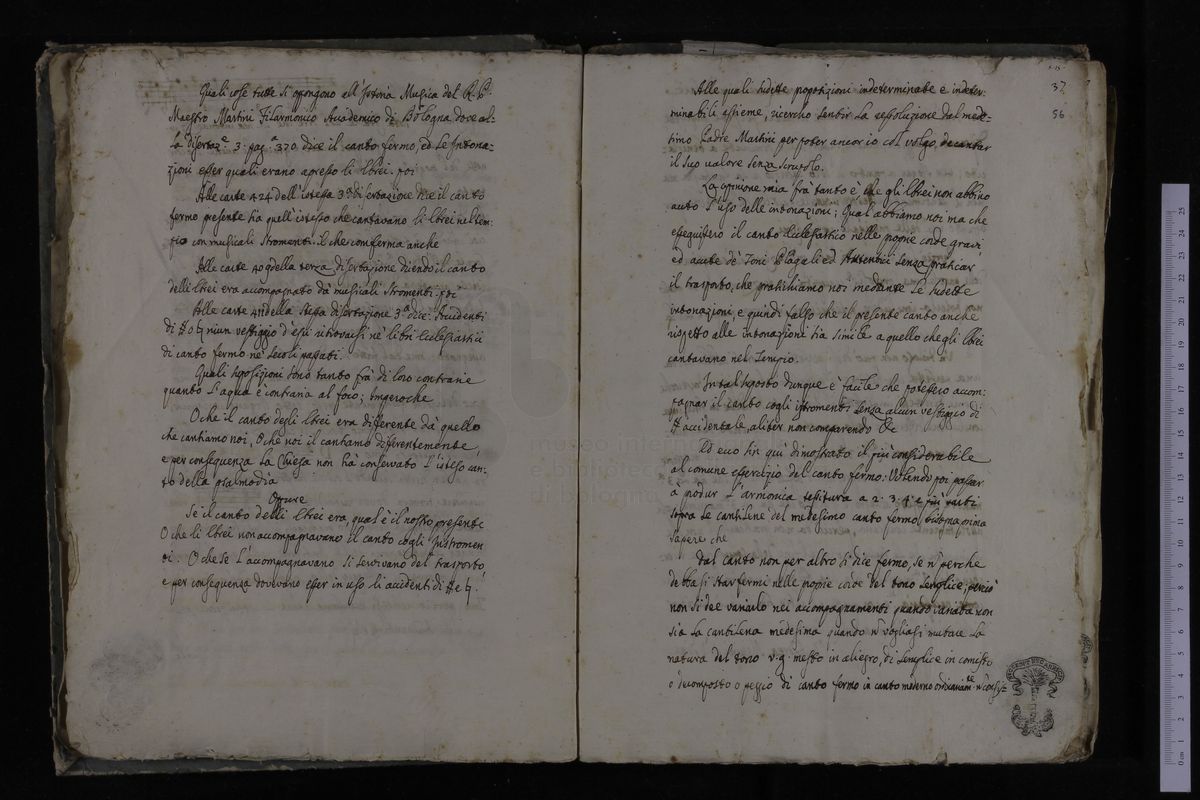 Quali cose tutte si oppongono all'Istoria Musica del R. P.
Maestro Martini Filarmonico Accademico di Bologna dove al-
la disertaz.e 3. pag.e 370. dice il canto fermo, ed le Intona-
zioni esser quali erano apresso li Ebrei. poi
Alle carte 424 dell'istessa 3.a disertazione dice il canto
fermo presente hà quell'istesso che cantavano li Ebrei nel tem-
pio con musicali stromenti. il che conferma anche
Alle carte 409 della terza disertazione dicendo il canto
delli Ebrei era acompagnato dà musicali stromenti. poi
Alle carte 411 della stessa disertazione 3.a dice: Accidenti
di # o ♮ niun vestiggio d'essi ritrovarsi ne' libri Ecclesiastici
di canto fermo ne' secoli passati.
Quali proposizioni sono tanto frà di loro contrarie
quanto l'aqua è contraria al foco; imperoche
O che il canto degli Ebrei era differente dà quello
che cantiamo noi, O che noi il cantiamo differentemente,
e per conseguenza la Chiesa non hà conservato l'istesso can-
to della psalmodia
Oppure
Se il canto delli Ebrei era, qual'è il nostro presente
O che li Ebrei non accompagnavano il canto cogli Instromen
ti: O che se l'acompagnavano si servivano del trasporto,
e per conseguenza dovevano esser in uso li accidenti di # e ♮.
37
56
Alle quali sudette propotizioni indeterminate e indeter-
minabili assieme, ricercho sentir la ressoluzione dal mede-
simo Padre Martini per poter ancor io col volgo, decantar
il suo valore senza scrupolo.
La opinione mia frà tanto è che gli Ebrei non abbino
auto l'uso delle intonazioni; Qual abbiamo noi ma che
esseguissero il canto Ecclesiastico nelle proprie corde gravi
ed acute de' Toni Plagali ed Autentici senza praticar
il trasporto, che pratichiamo noi mediante le sudette
intonazioni, e quindi falso che il presente canto anche
rispetto alle intonazioni sia simile a quello che gli Ebrei
cantavano nel Tempio.
In tal suposto dunque è facile che potessero accom-
pagnar il canto cogli istromenti senza alcun vestiggio di
# accidentale, aliter non comparendo &c
Ed ecco sin quì dimostrato il più considerabile
al comune essercizio del canto fermo: Volendo poi passar
à produr l'armonica tessitura a 2. 3. 4. e più parti
sopra le cantilene del medesimo canto fermo, bisogna prima
sapere che
Tal canto non per altro si dice fermo, se n' perche
debba si star fermi nelle proprie corde del tono semplice, perciò
non si dee variarlo nei accompagnamenti quando variata non
sia la cantilena medesima quando n' vogliasi mutare la
natura del tono v.g. mesto in allegro, di semplice in comisto
o decomposto o peggio di canto fermo in canto moderno